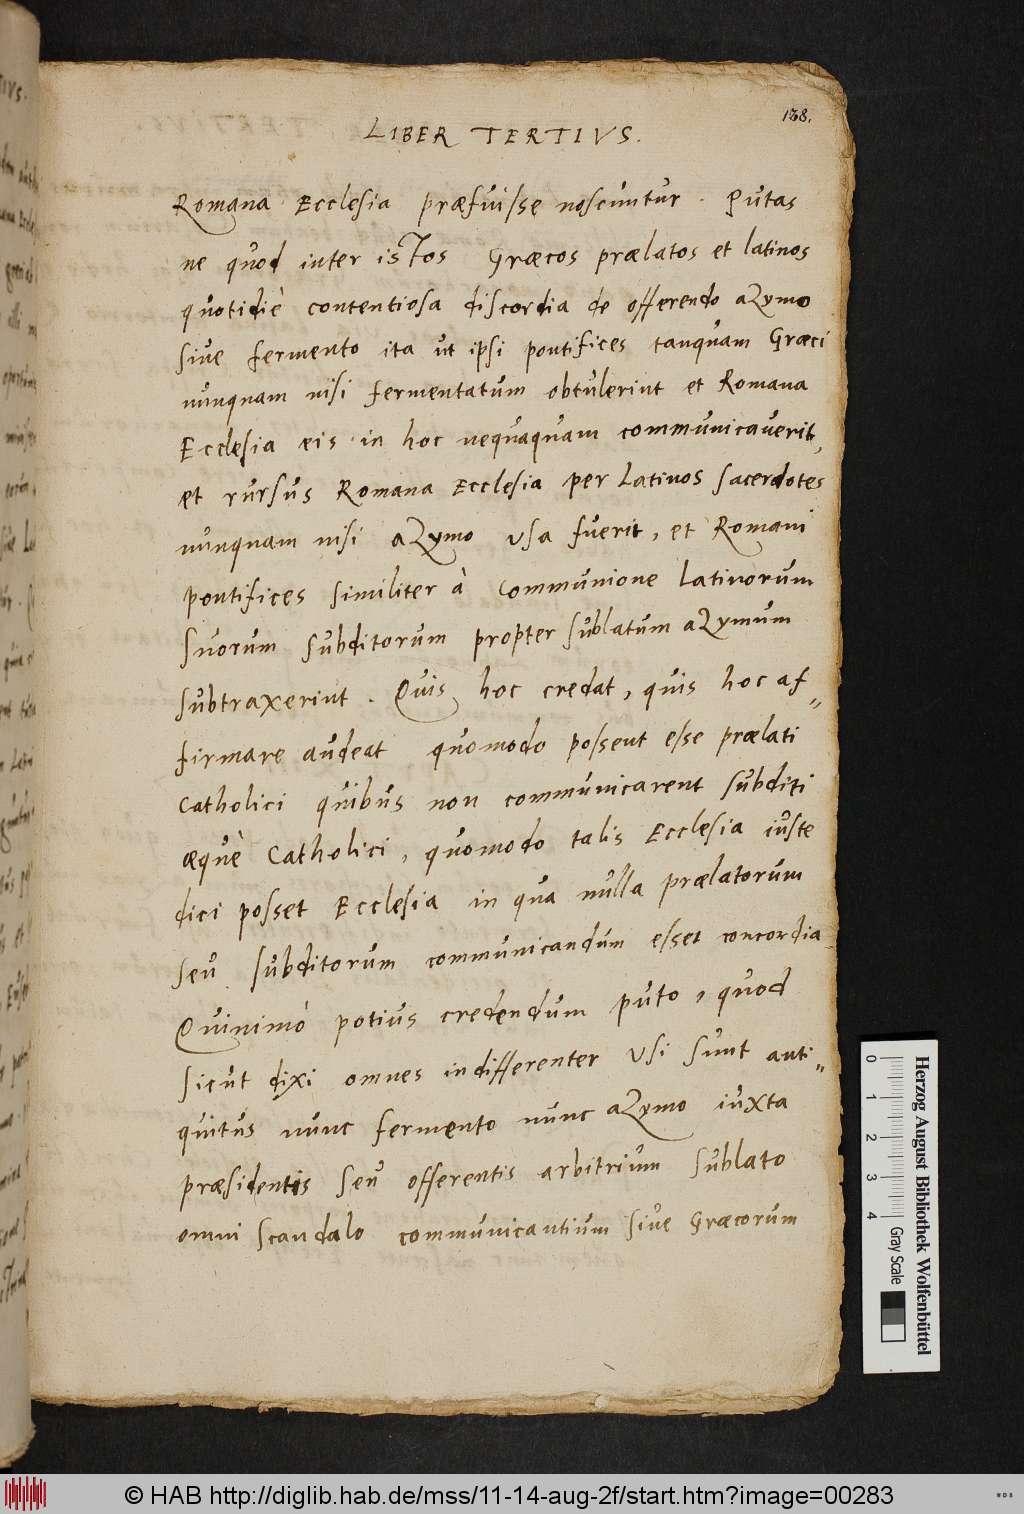 138.
LIBER TERTIVS.
Romana Ecclesia præfuisse noscuntur. Putas
ne quod inter istos Græcos prælatos et latinos
quotidiè contentiosa discordia de offerendo azymo
sive fermento ita ut ipsi pontifices tanquam Græci
nunquam nisi fermentatum obtulerint et Romana
Ecclesia eis in hoc nequaquam communicaverit,
et rursus Romana Ecclesia per Latinos sacerdotes
nunquam nisi azymo usa fuerit, et Romani
pontifices similiter à communione Latinorum
suorum subditorum propter sublatum azymum
subtraxerint. Quis hoc credat, quis hoc af„
firmare audeat quomodo possent esse prælati
Catholici quibus non communicarent subditi
æquè Catholici, quomodo talis Ecclesia iuste
dici posset Ecclesia in qua nulla prælatorum
seu subditorum communicandum esset concordia
Quinimò potius credendum puto, quod
sicut dixi omnes indifferenter usi sunt anti„
quitus nunc fermento nunc azymo iuxta
præsidentis seu offerentis arbitrium sublato
omni scandalo communicantium sive Græcorum
Herzog August Bibliothek Wolfenbüttel
0 1 2 3 4 Gray Scale
© HAB http://diglib.hab.de/mss/11-14-aug-2f/start.htm?image=00283